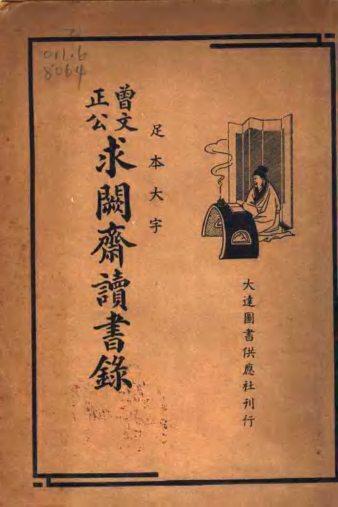 足本大字
曾文正公
求闕齋讀書錄
大達圖書供應社刊行
011.6
8064